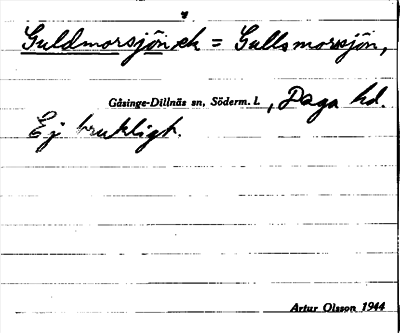 Guldmorsjön, ek = Gullsmorssjön,
Gåsinge-Dillnäs sn, Söderm. l., Daga hd.
Ej brukligt.
Artur Olsson 1944